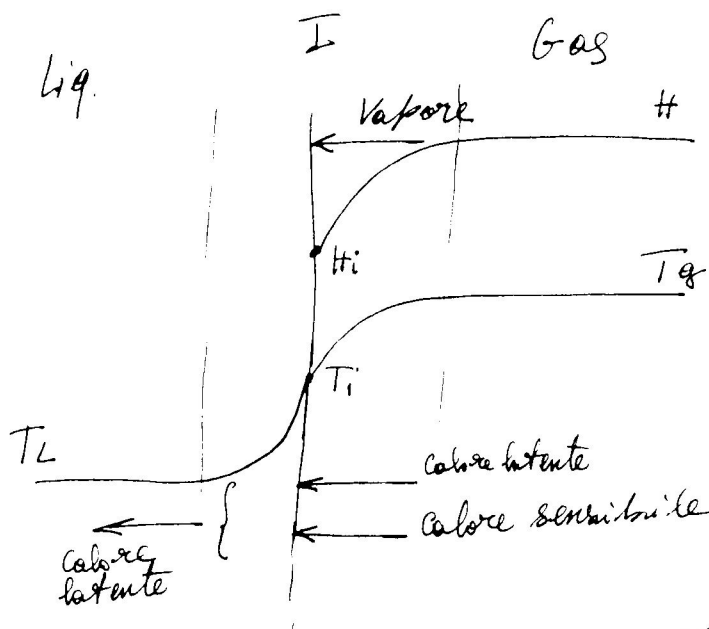 I
Gas
Liq.
Vapore
H
Hi
Tg
Ti
TL
calore latente
calore sensibile
calore
latente